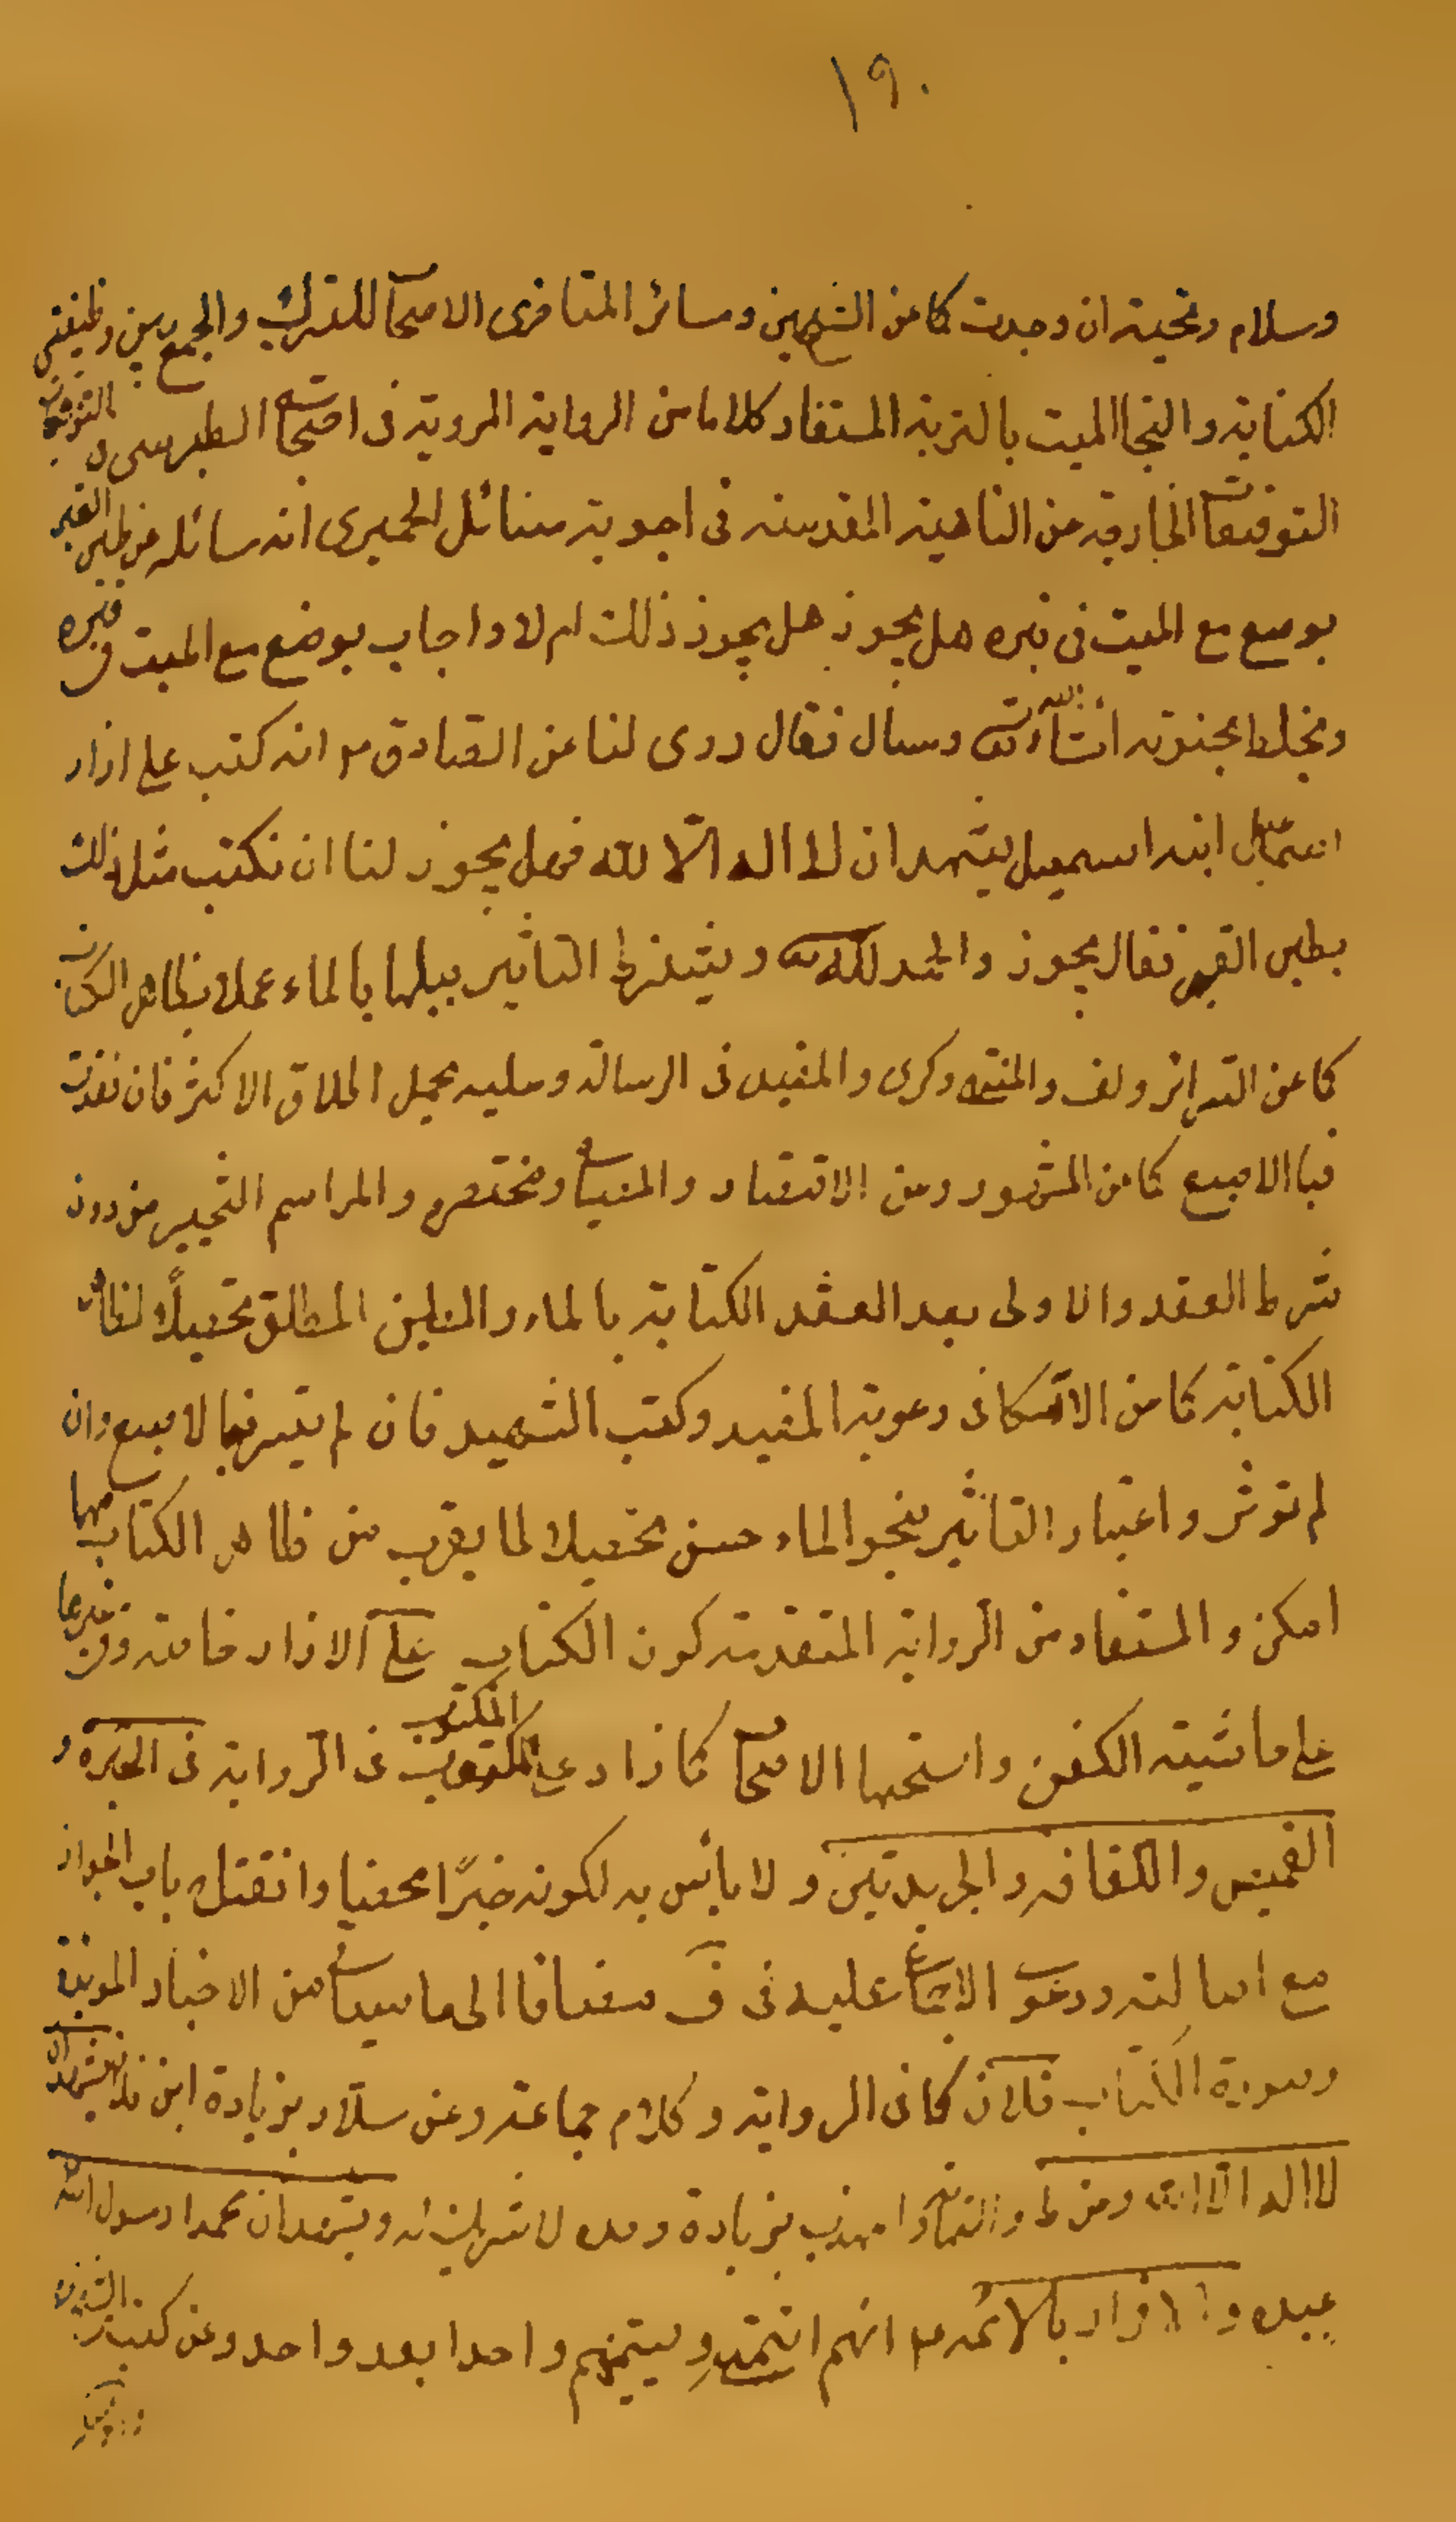 ١٩٠
وسلام ومحيته ان وجدت كما عن الشيخين وسائر المتاخرى الاصحا للتبرك والجمع بين وظيفتى
الكتابة والتجا الميت بالتربة المستفاد كلاما من الرواية المروية فى احتجا الطبرسى
التوقيعات الخارجة من الناحية المقدسة فى اجوبة مسائل الحميرى انه سائله عن طين القبر
يوضع مع الميت فى قبره هل يجوز هل يجوز ذلك ام لا واجاب يوضع مع الميت فى قبره
ويخلط بحنوطه انشاء الله وسال فقال روى لنا عن الصادق انه كتب على ازار
اسمعيل ابنه اسمعيل يشهد ان لا اله الا الله فهل يجوز لنا ان نكتب مثل ذلك
بطين القبر فقال يجوز والحمد لله ويشترط التاثير ببلها بالماء عملا بظاهر الكتابة
كما عن السرائر ولف والمنتهى وكرى والمفيد فى الرسالة وعليه يحمل اطلاق الاكثر فان فقدت
فبالاصبع كما عن المشهور وعن الاقتصاد والمصباح ومختصره والمراسم التخيير من دون
شرط الفقد والاولى بعد الفقد الكتابة بالماء والطين المطلق تحصيلا لظاهر
الكتابة كما عن الاسكافى وعزية المفيد وكتب الشهيد فان لم يتيسر فبالاصبع وان
لم تؤثر واعتبار التاثير بنحو الماء حسن تحصيلا لما يقرب من ظاهر الكتاب مهما
امكن والمستفاد من الرواية المتقدمة كون الكتاب على الازار خاصة
على حاشية الكفن واستحبها الاصحا كما زاد على المكتوب فى الرواية فى الحبرة و
القميص واللفافة والجريدتين ولا باس به لكونه خيرا محضا وانفتاح باب الجواز
مع اصالته ودعوى الاجماع عليه فى ف مضافا الى ما سياتى من الاخبار
وصورة الكتاب فلان كما فى الرواية وكلام جماعة وعن سلار بزيادة ابن فلان يشهد ان
لا اله الا الله وعن ط والنهاية والمهذب بزيادة وحده لا شريك له ويشهد ان محمدا رسول الله
عبيده والاقرار بالائمة انهم ائمته ويسميهم واحدا بعد واحد وعن كتب